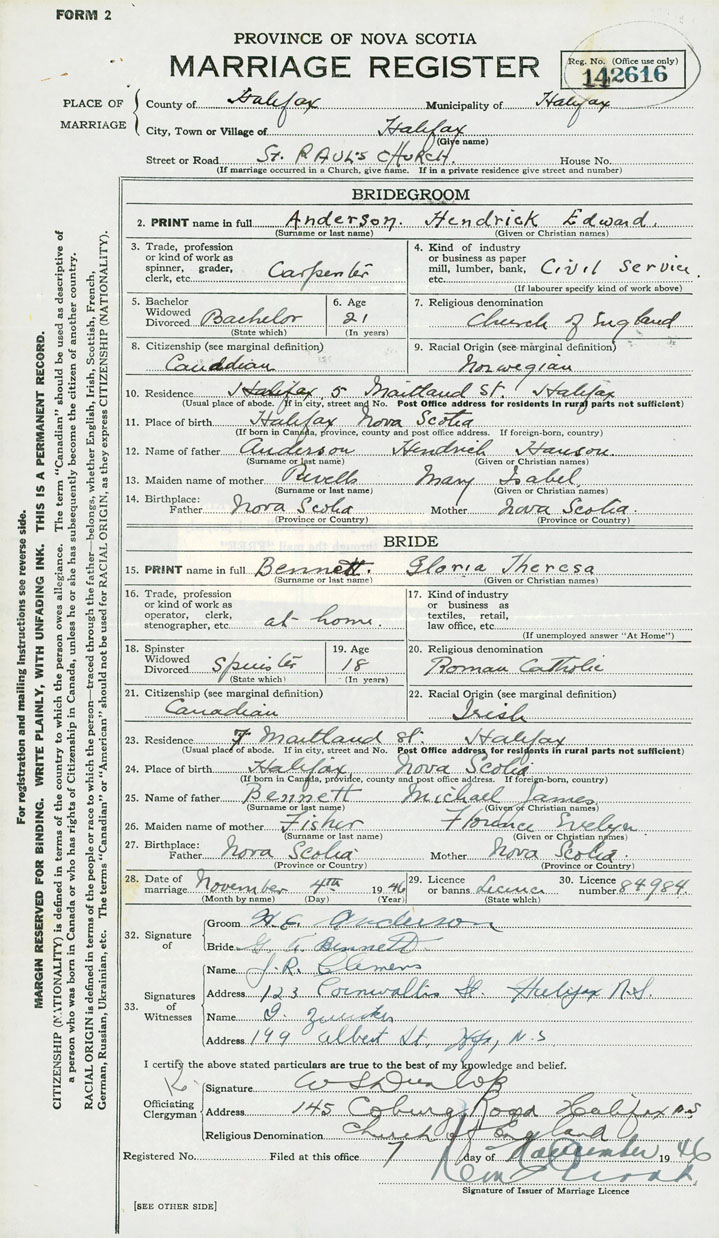 FORM 2
PROVINCE OF NOVA SCOTIA
MARRIAGE REGISTER
Reg. No. (Office use only)
142616
PLACE OF MARRIAGE
County of Halifax Municipality of Halifax
City, Town or Village of Halifax
(Give name)
Street or Road ST. PAUL'S CHURCH. House No.
(If marriage occurred in a Church, give name. If in a private residence give street and number)
BRIDEGROOM
2. PRINT name in full Anderson. Hendrick Edward.
(Surname or last name) (Given or Christian names)
3. Trade, profession or kind of work as spinner, grader, clerk, etc. Carpenter
4. Kind of industry or business as paper mill, lumber, bank, etc. Civil Service.
(If labourer specify kind of work above)
5. Bachelor Widowed Divorced Bachelor
(State which)
6. Age 21
(In years)
7. Religious denomination
Church of England
8. Citizenship (see marginal definition)
Canadian
9. Racial Origin (see marginal definition)
Norwegian
10. Residence Halifax 5 Maitland St. Halifax
(Usual place of abode. If in city, street and No. Post Office address for residents in rural parts not sufficient)
11. Place of birth Halifax Nova Scotia
(If born in Canada, province, county and post office address. If foreign-born, country)
12. Name of father Anderson Hendrick Hanson.
(Surname or last name) (Given or Christian names)
13. Maiden name of mother Mary Isabel.
(Surname or last name) (Given or Christian names)
14. Birthplace: Father Nova Scotia Mother Nova Scotia.
(Province or Country) (Province or Country)
BRIDE
15. PRINT name in full Bennett. Gloria Theresa
(Surname or last name) (Given or Christian names)
16. Trade, profession or kind of work as operator, clerk, stenographer, etc. at home.
17. Kind of industry or business as textiles, retail, law office, etc.
(If unemployed answer "At Home")
18. Spinster Widowed Divorced Spinster
(State which)
19. Age 18
(In years)
20. Religious denomination
Roman Catholic
21. Citizenship (see marginal definition)
Canadian
22. Racial Origin (see marginal definition)
Irish
23. Residence 7 Maitland St. Halifax
(Usual place of abode. If in city, street and No. Post Office address for residents in rural parts not sufficient)
24. Place of birth Halifax Nova Scotia
(If born in Canada, province, county and post office address. If foreign-born, country)
25. Name of father Bennett Michael James
(Surname or last name) (Given or Christian names)
26. Maiden name of mother Fisher Florence Evelyn
(Surname or last name) (Given or Christian names)
27. Birthplace: Father Nova Scotia Mother Nova Scotia.
(Province or Country) (Province or Country)
28. Date of marriage November 4th 1946
(Month by name) (Day) (Year)
29. Licence or banns Licence
(State which)
30. Licence number 84984
32. Signature of
Groom H. E. Anderson
Bride G. T. Bennett
33. Signatures of Witnesses
Name J. R. Clemens
Address 123 Cornwallis St. Halifax N.S.
Name
Address 199 Albert St, Hfx, N.S
I certify the above stated particulars are true to the best of my knowledge and belief.
Officiating Clergyman
Signature W S Dunlop
Address 145 Coburg Road Halifax N.S
Religious Denomination Church of England
Registered No. Filed at this office 7 day of November 1946
Signature of Issuer of Marriage Licence
[SEE OTHER SIDE]
For registration and mailing instructions see reverse side.
MARGIN RESERVED FOR BINDING. WRITE PLAINLY, WITH UNFADING INK. THIS IS A PERMANENT RECORD.
CITIZENSHIP (NATIONALITY) is defined in terms of the country to which the person owes allegiance. The term "Canadian" should be used as descriptive of
a person who was born in Canada or who has rights of Citizenship in Canada, unless he or she has subsequently become the citizen of another country.
RACIAL ORIGIN is defined in terms of the people or race to which the person—traced through the father—belongs, whether English, Irish, Scottish, French,
German, Russian, Ukrainian, etc. The terms "Canadian" or "American" should not be used for RACIAL ORIGIN, as they express CITIZENSHIP (NATIONALITY).